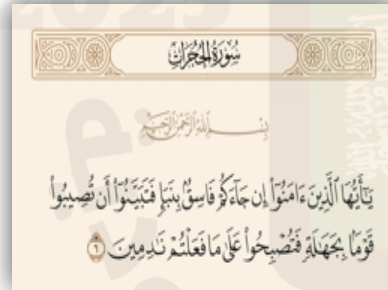 سُورَةُ الْحُجُرَاتِ
بِسْمِ اللَّهِ الرَّحْمَٰنِ الرَّحِيمِ
يَـٰٓأَيُّهَا ٱلَّذِينَ ءَامَنُوٓا۟ إِن جَآءَكُمْ فَاسِقٌۢ بِنَبَإٍ فَتَبَيَّنُوٓا۟ أَن تُصِيبُوا۟
قَوْمًۢا بِجَهَـٰلَةٍ فَتُصْبِحُوا۟ عَلَىٰ مَا فَعَلْتُمْ نَـٰدِمِينَ ٦